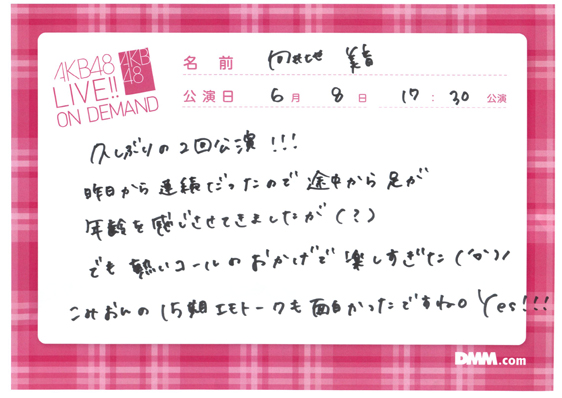 AKB48
LIVE!!
ON DEMAND
AKB
48
名前 向井地 美音
公演日 6月 8日 17:30 公演
久しぶりの2回公演!!!
昨日から連続だったので途中から足が
年齢を感じさせてきましたが(?)
でも熱いコールのおかげで楽しすぎた
こみおんの15期エモトークも面白かったですね。Yes!!!
DMM.com